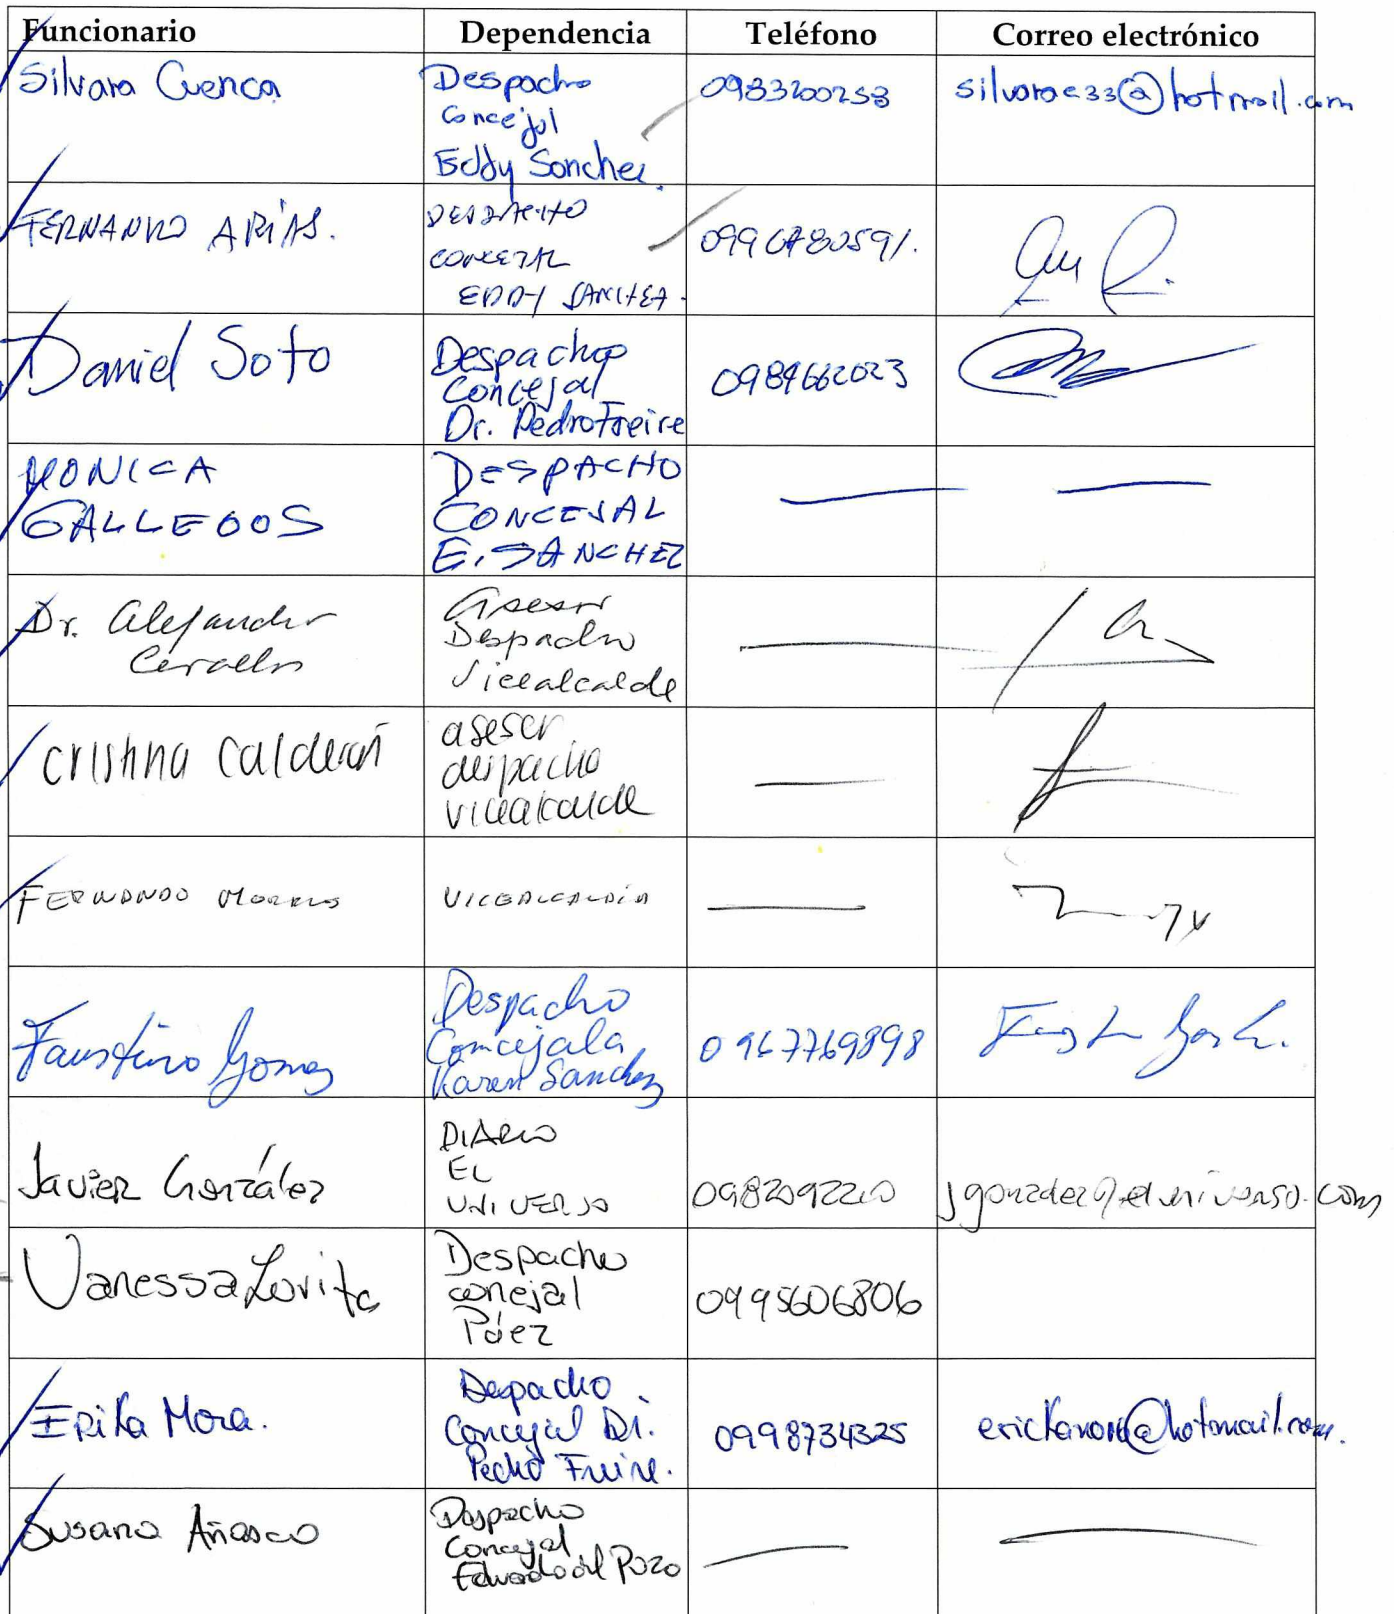 Funcionario Dependencia Teléfono Correo electrónico
Silvana Cuenca
Despacho
Concejal
Eddy Sanchez.
0983200258
FERNANDO ARIAS.
DESPACHO
CONCEJAL
EDDY SANCHEZ.
0990780591.
Daniel Soto
Despacho
Concejal
Dr. Pedro Freire
0984662023
MONICA
GALLEGOS
DESPACHO
CONCEJAL
E. SANCHEZ
Dr. Alejandro
Cevallos
Asesor
Despacho
Vicealcalde
Cristina Calderón
asesor
despacho
vicealcalde
FERNANDO MORALES
VICEALCALDÍA
Faustino Gomez
Despacho
Concejala
Karen Sanchez
0967769898
Javier González
DIARIO
EL
UNIVERSO
0982092210
Vanessa
Despacho
conejal
Páez
0995606806
Erika Mora.
Despacho
Concejal Dr.
Pedro Freire.
0998734325
Susana Añasco
Despacho
Concejal
Eduardo del Pozo